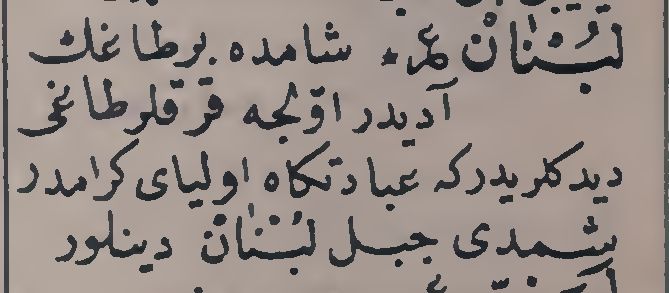 لُبْنَانْ عمر شامده برطاغك
آديدر اوّلجه قرقلرطاغى
ديدكلريدركه عبادتكاه اولياى كرامدر
شمدى جبل لُبْنَانْ دينلور